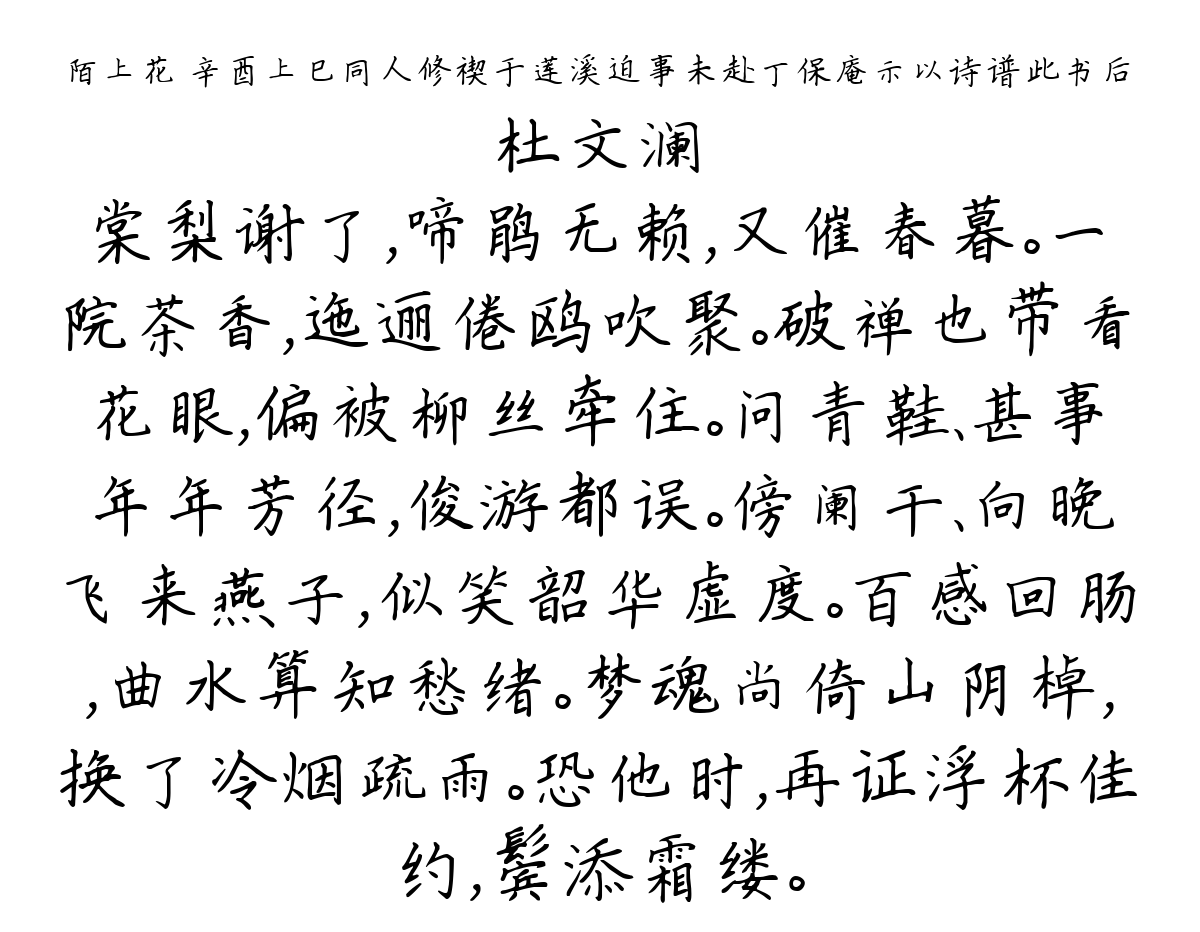 陌上花 辛酉上巳同人修禊于莲溪迫事未赴丁保庵示以诗谱此书后
杜文澜
棠梨谢了,啼鹃无赖,又催春暮。一
院茶香,迤逦倦鸥吹聚。破禅也带看
花眼,偏被柳丝牵住。问青鞋、甚事
年年芳径,俊游都误。傍阑干、向晚
飞来燕子,似笑韶华虚度。百感回肠
,曲水算知愁绪。梦魂尚倚山阴棹,
换了冷烟疏雨。恐他时,再证浮杯佳
约,鬓添霜缕。